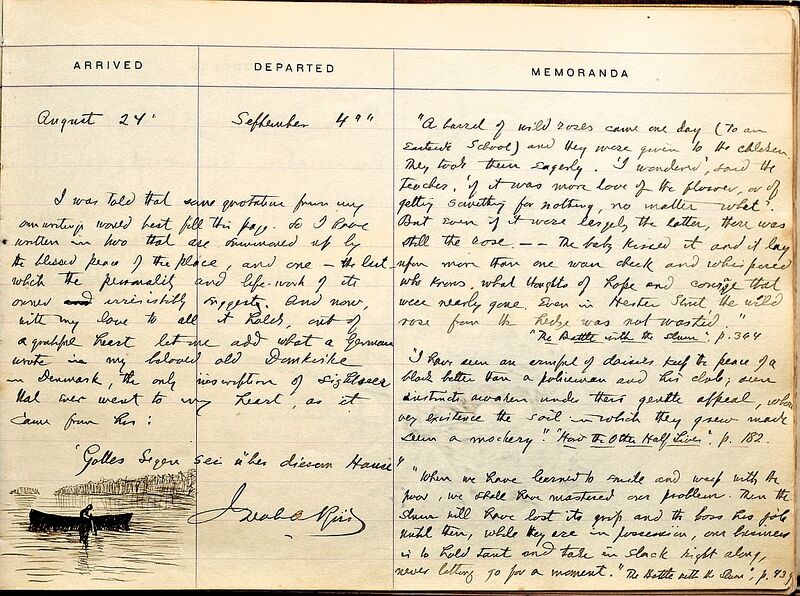 ARRIVED
DEPARTED
MEMORANDA
August 24
September 4th
I was told that some quotation from my
own writings would best fill this page. So I have
written in two that are summoned up by
the blessed peace of the place, and one – the last –
which the personality and life-work of its
owner irresistibly suggests. And now,
with my love to all it holds, out of
a grateful heart let me add what a German
wrote in my beloved old Domkirke
in Denmark, the only inscription of Sightseer
that ever went to my heart, as it
came from his:
"Gottes Segen sei über diesem Hause
Jacob A Riis
"A barrel of wild roses came one day (to an
Eastside School) and they were given to the children.
They took them eagerly. 'I wondered', said the
teacher, 'if it was more love of the flower, or of
getting something for nothing, no matter what'.
But even if it were largely the latter, there was
still the rose. – – The baby kissed it and it lay
upon more than one wan cheek and whispered
who knows what thoughts of hope and courage that
were nearly gone. Even in Hester Street the wild
rose from the hedge was not wasted."
"The Battle with the Slum", p. 364
"I have seen an armful of daisies keep the peace of a
block better than a policeman and his club; seen
instincts awaken under their gentle appeal, whose
very existence the soil in which they grew made
seem a mockery". "How the Other Half Lives", p. 182.
"When we have learned to smile and weep with the
poor, we shall have mastered our problem. Then the
slum will have lost its grip and the boss his job.
Until then, while they are in possession, our business
is to hold taut and take in slack right along,
never letting go for a moment." "The Battle with the Slum", p. 439